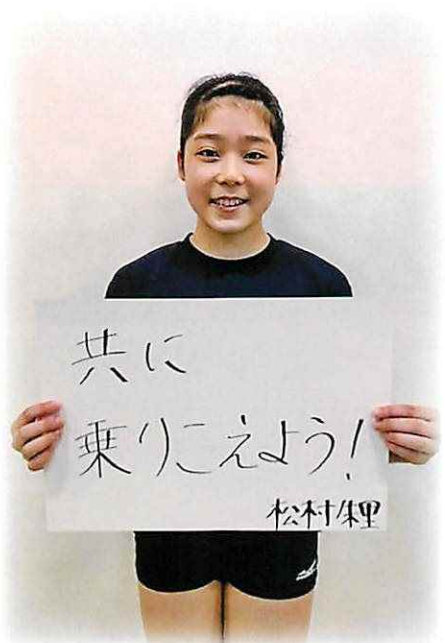 共に
乗りこえよう!
松村朱里